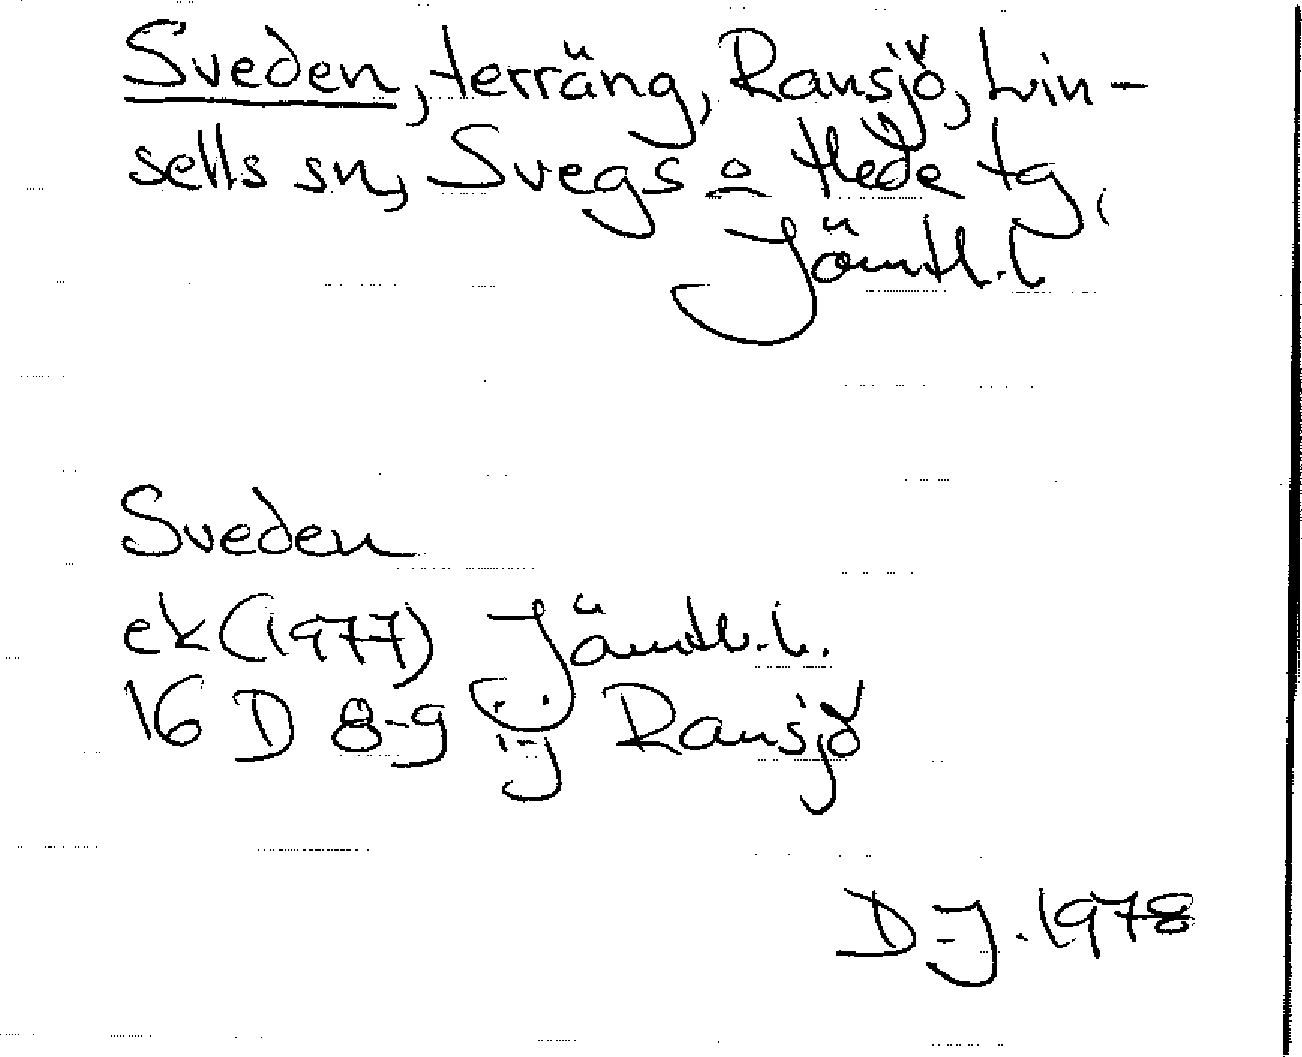 Sveden, terräng, Ransjö, Lin-
sells sn, Svegs o Hede tg,
Jämtl.l
Sveden
ek (1977) Jämtl.l.
16 D 8-9 i-j Ransjö
DJ. 1978